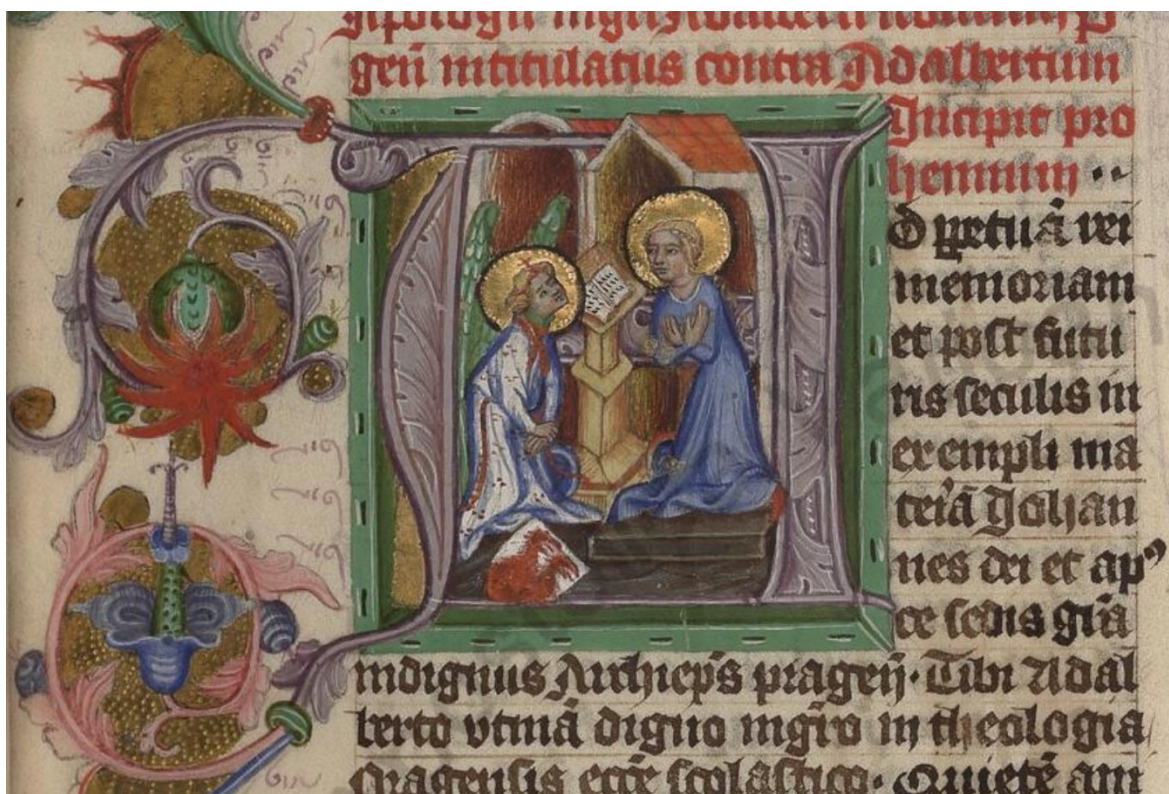 gen̄ intitulatus contra Adalbertum
Incipit pro
hemium ··
D ꝑpetuā rei
memoriam
et post futu
ris seculis in
exempli ma
teriā Johan
nes dei et apꝰ
ce sedis gr̄a
indignus Archiep̄s pragen̄. Tibi Adal
berto vtinā digno mgr̄o in theologia
Pragensis ecc̄e scolastico. Quietē am